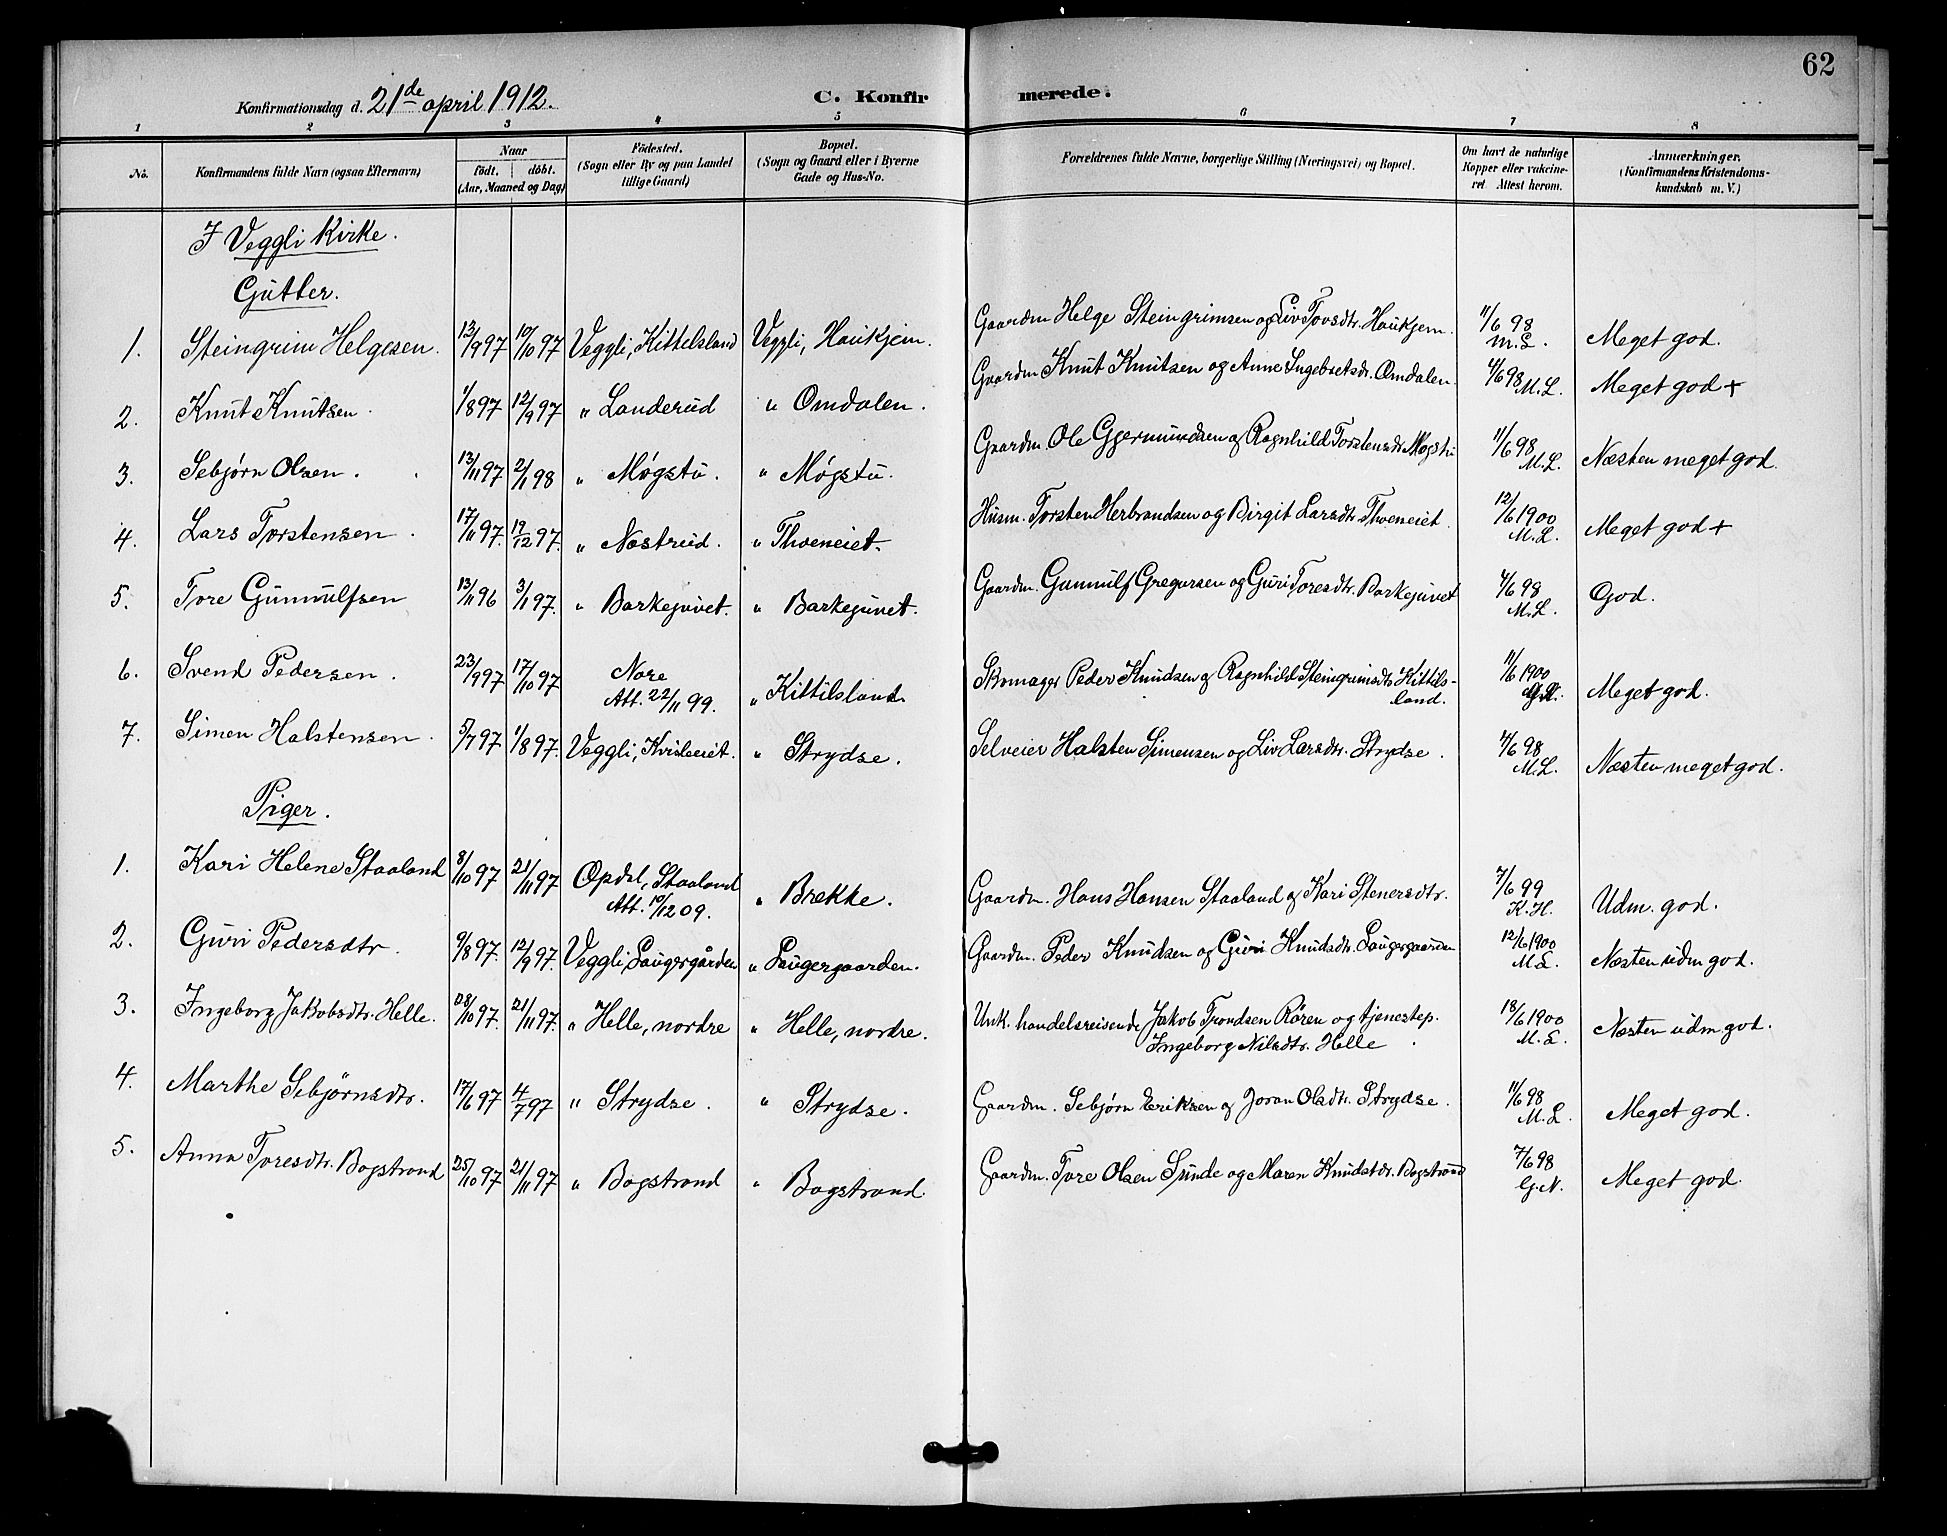 62
Konfirmationsdag d. 21de april 1912. C. Konfirmerede.
1 2 3 4 5 6 7 8
No. Konfirmandens fulde Navn (ogsaa Efternavn) Naar født. døbt. (Aar, Maaned og Dag) Fødested. (Sogn eller By og paa Landet tillige Gaard) Bopæl. (Sogn og Gaard eller i Byerne Gade og Hus-No. Forældrenes fulde Navne, borgerlige Stilling (Næringsvei) og Bopæl. Om havt de naturlige Kopper eller vakcineret Attest herom. Anmærkninger. (Konfirmandens Kristendomskundskab m. V.)
I Veggli Kirke.
Gutter.
1. Steingrim Helgesen. 13/9 97 10/10 97 Veggli, Kittelsland Veggli, Haukjem. Gaardm Helge Steingrimsen og Liv Tovsdtr. Haukjem. 11/6 98 M.L. Meget god.
2. Knut Knutsen. 1/8 97 12/9 97 " Landerud " Omdalen. Gaardm Knut Knutsen og Anne Ingebretsdr. Omdalen. 4/6 98 M.L. Meget god +
3. Sebjørn Olsen. 13/11 97 2/1 98 " Møgstu. " Møgstu. Gaardm. Ole Gjermundsen og Ragnhild Torstensdr. Møgstu 11/6 98 M.L. Næsten meget god.
4. Lars Torstensen. 17/11 97. 19/12 97. " Nastrud. " Thoeneiet. Husm. Torsten Herbrandsen og Birgit Larsdtr. Thoeneiet. 12/6 1900 M.L. Meget god +
5. Tore Gunnulfsen 13/11 96 3/1 97. " Barkejuvet. " Barkejuvet. Gaardm. Gunnulf Gregarsen og Guri Toresdtr. Barkejuvet 4/6 98 M.L. God.
6. Svend Pedersen. 23/9 97 17/10 97 Nore Att. 22/11 99. " Kittilsland. Skomager Peder Knudsen og Ragnhild Steingrimsdtr. Kittilsland. 11/6 1900 Meget god.
7. Simen Halstensen. 5/7 97 1/8 97. Veggli, Kvisleeiet. " Strydse. Selveier Halsten Simensen og Liv Larsdtr. Strydse. 4/6 98 M.L. Næsten meget god.
Piger.
1. Kari Helene Staaland 8/10 97 21/11 97 Opdal, Staaland Att. 10/12 09. " Brekke. Gaardm. Hans Hansen Staaland og Kari Stenersdtr. 7/6 99 K.H. Udm. god.
2. Guri Pedersdtr. 9/8 97. 12/9 97. Veggli, Laugergården " Laugergaarden. Gaardm. Peder Knudsen og Guri Knudsdtr. Laugergaarden 12/6 1900 M.L. Næsten udm god.
3. Ingeborg Jakobsdtr. Helle. 28/10 97. 21/11 97. " Helle, nordre " Helle, nordre. Unk. handelsreisende Jakob Trondsen Røren og tjenestep.
Ingeborg Nilsdtr. Helle. 18/6 1900 M.L. Næsten udm god.
4. Marthe Sebjørnsdtr. 17/6 97 4/7 97 " Strydse. " Strydse. Gaardm. Sebjørn Eriksen og Joran Olsdtr. Strydse. 11/6 98 M.L. Meget god.
5. Anna Toresdtr. Bogstrand 25/10 97 21/11 97 " Bogstrand " Bogstrand. Gaardm. Tore Olsen Sunde og Maren Knudstdr. Bogstrand 7/6 98 G.N. Meget god.